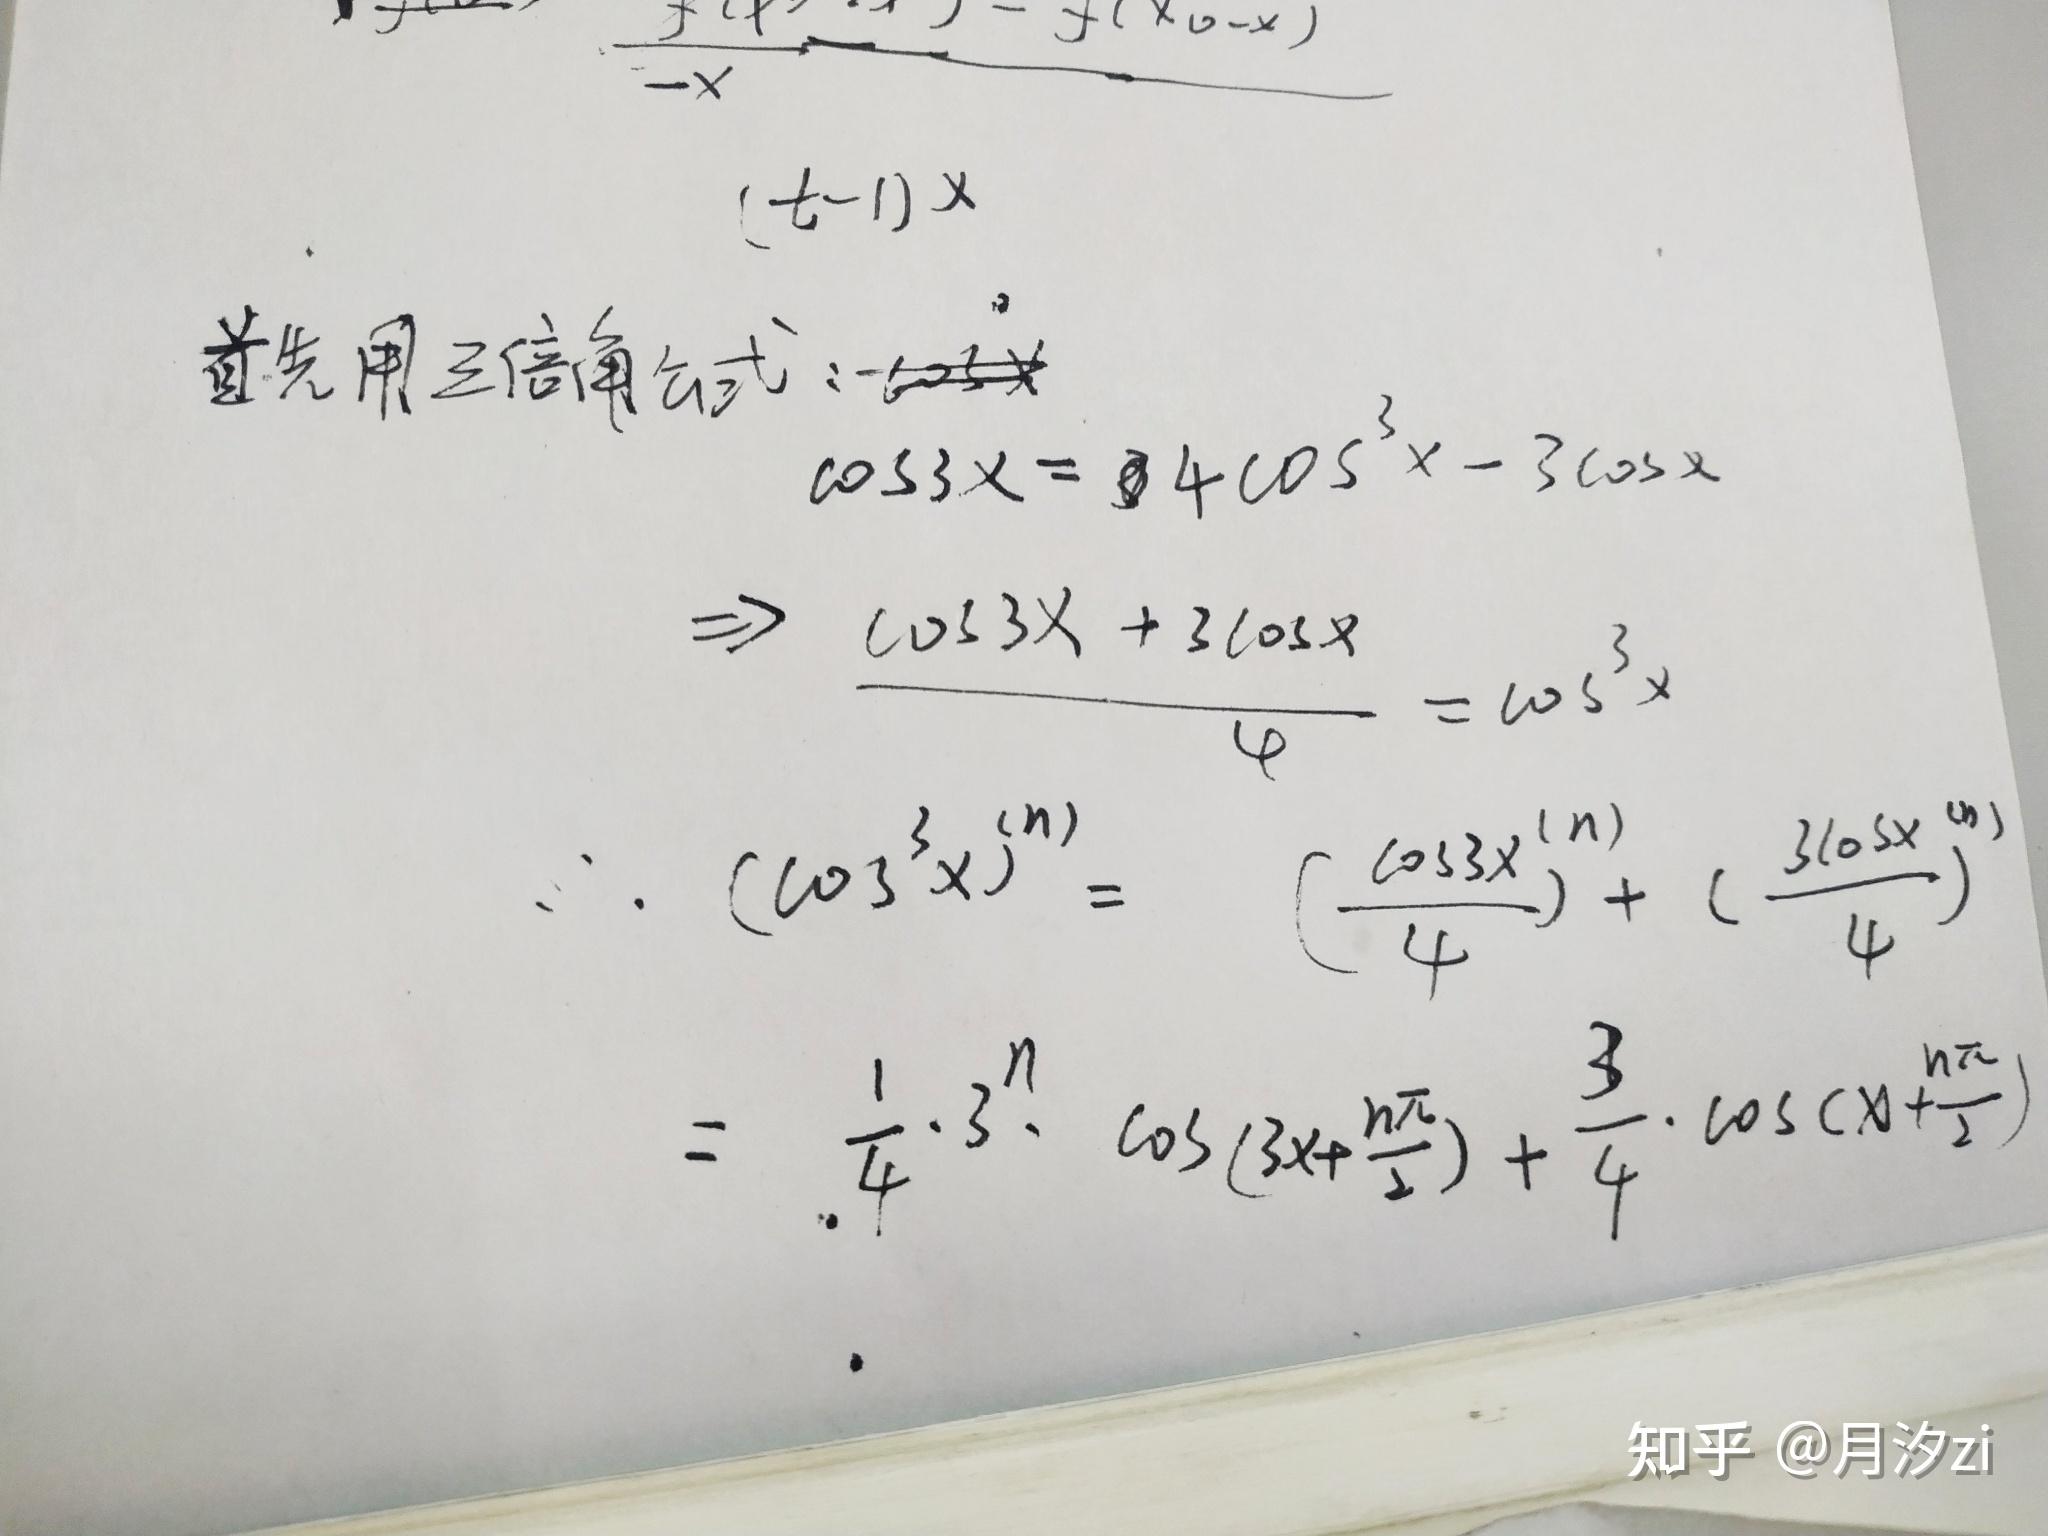 - f(x₀-x)
-x
(t-1)x
首先用三倍角公式:
cos3x = 4cos³x - 3cosx
⇒ (cos3x + 3cosx)/4 = cos³x
∴ (cos³x)⁽ⁿ⁾ = (cos3x/4)⁽ⁿ⁾ + (3cosx/4)⁽ⁿ⁾
= 1/4 · 3ⁿ · cos(3x + nπ/2) + 3/4 · cos(x + nπ/2)
知乎 @月汐zi